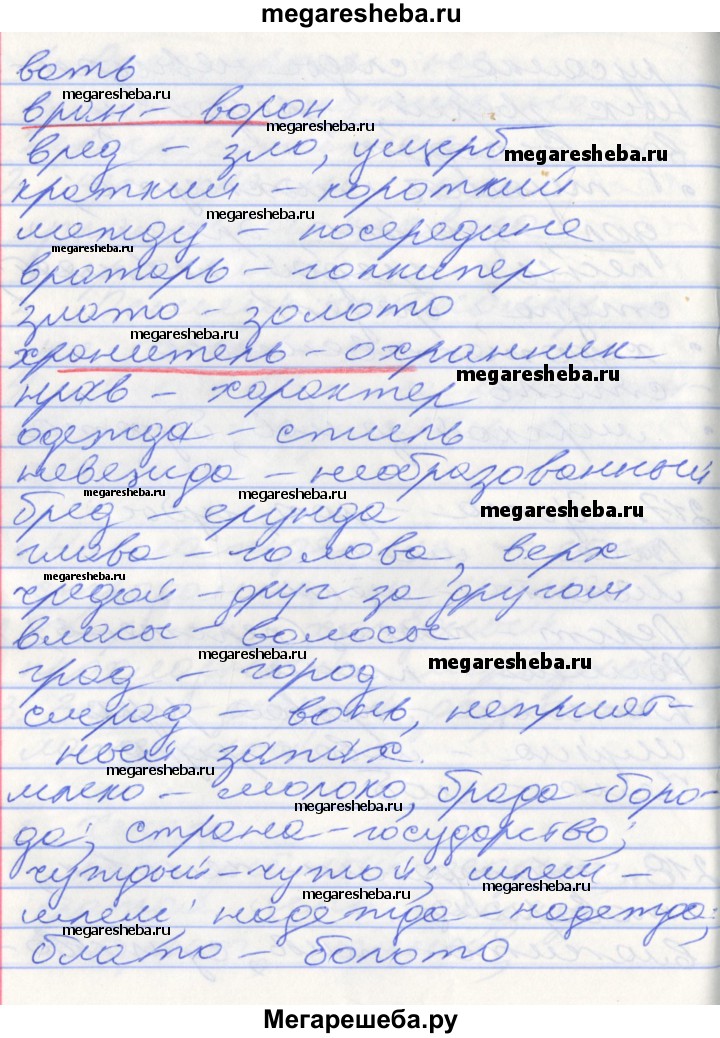 megaresheba.ru
вать
megaresheba.ru
вран – ворон
megaresheba.ru
вред – зло, ущерб
megaresheba.ru
краткий – короткий
megaresheba.ru
между – посередине
megaresheba.ru
вратарь – голкипер
злато – золото
megaresheba.ru
хранитель – охранник
megaresheba.ru
нрав – характер
одежда – стиль
невежда – необразованный
megaresheba.ru
megaresheba.ru
бред – ерунда
megaresheba.ru
глава – голова, верх
megaresheba.ru
чредой – друг за другом
власы – волосы
megaresheba.ru
megaresheba.ru
град – город
смрад – вонь, неприят-
ный запах.
megaresheba.ru
млеко – молоко, брада – боро-
megaresheba.ru
да; страна – государство;
чуждый – чужой;
megaresheba.ru
надежда – надежа;
megaresheba.ru
блато – болото
Мегарешеба.ру